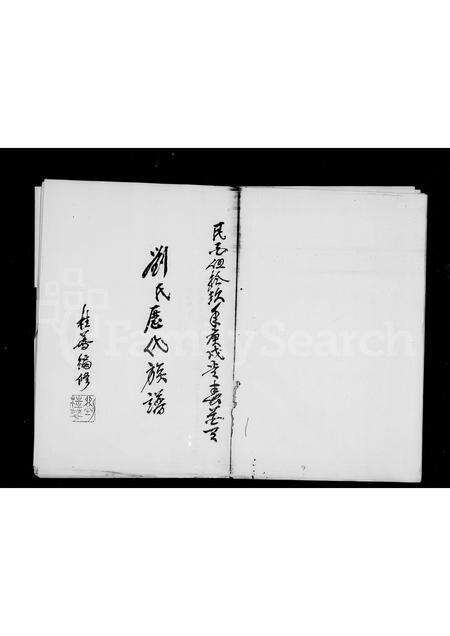 民国伍拾玖年庚戌
劉氏歷代族譜
桂編修
FamilySearch